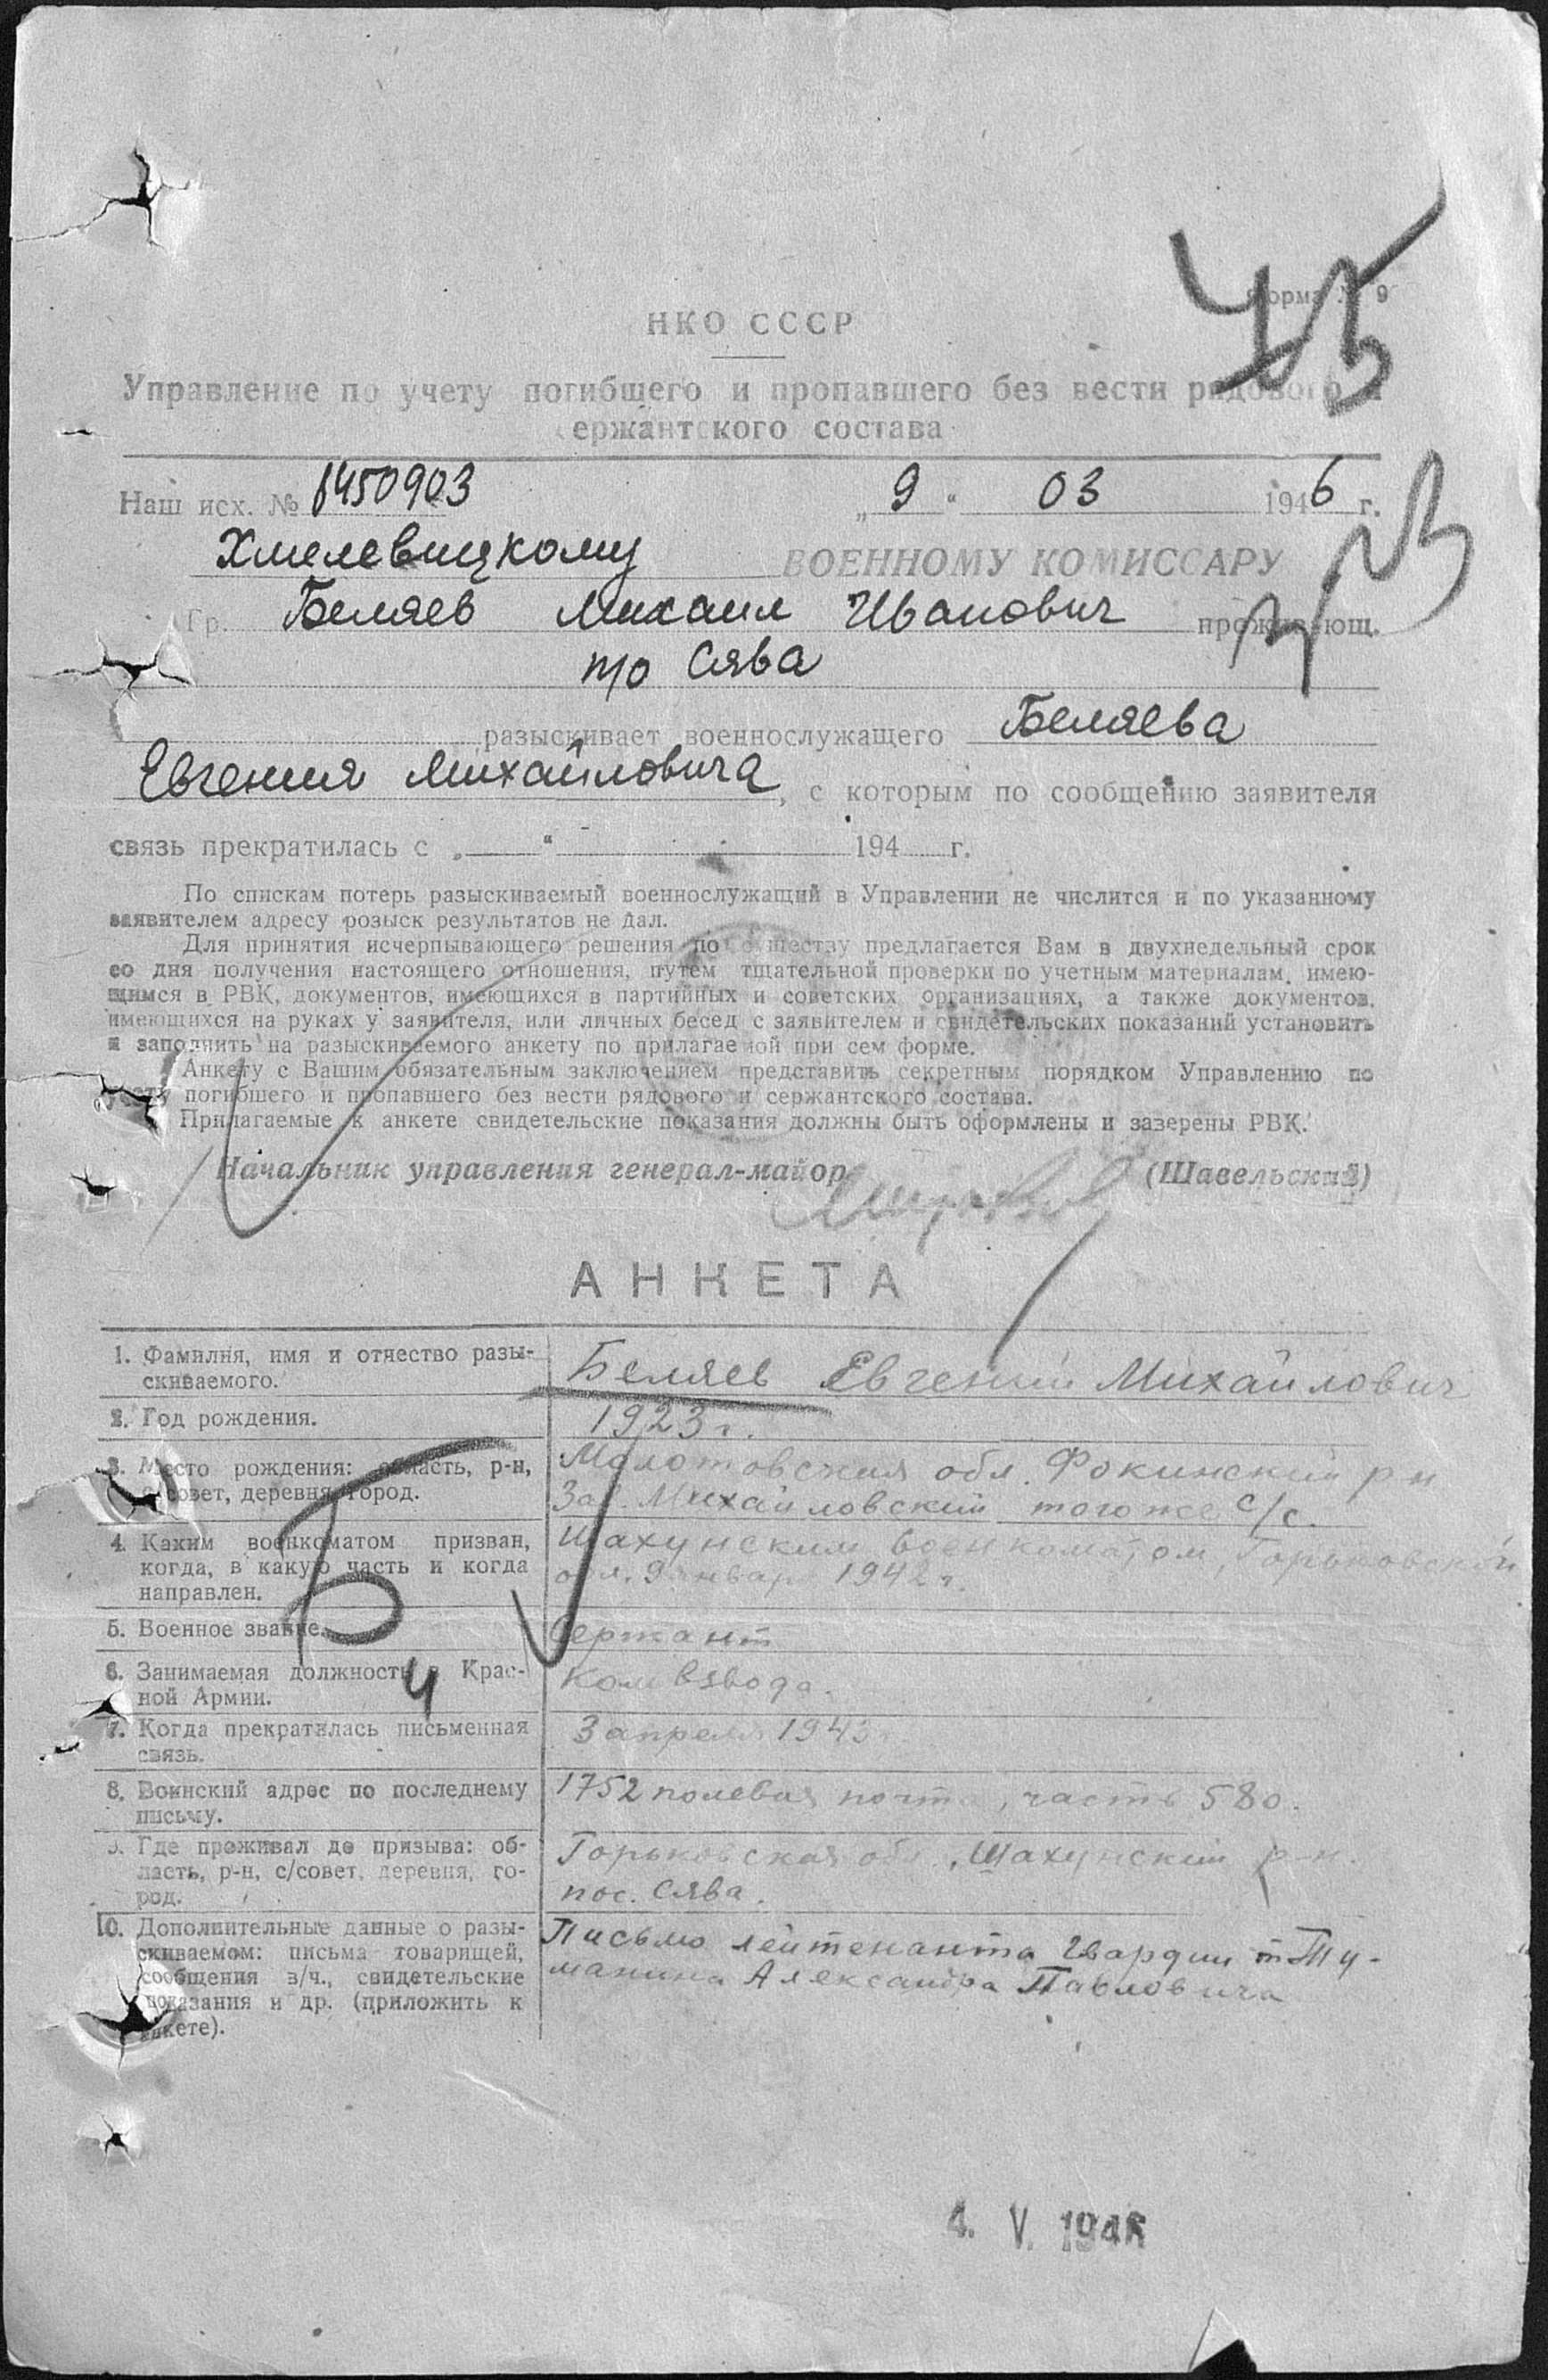 45
Форма № 9
НКО СССР
Управление по учету погибшего и пропавшего без вести рядового и
сержантского состава
Наш исх. № 1450903 „ 9 “ 03 1946 г.
Хмелевицкому ВОЕННОМУ КОМИССАРУ
Гр. Беляев Михаил Иванович проживающ.
п/о Сява
разыскивает военнослужащего Беляева
Евгения Михайловича, с которым по сообщению заявителя
связь прекратилась с „ “ 194 г.
По спискам потерь разыскиваемый военнослужащий в Управлении не числится и по указанному
заявителем адресу розыск результатов не дал.
Для принятия исчерпывающего решения по существу предлагается Вам в двухнедельный срок
со дня получения настоящего отношения, путем тщательной проверки по учетным материалам, имею-
щимся в РВК, документов, имеющихся в партийных и советских организациях, а также документов,
имеющихся на руках у заявителя, или личных бесед с заявителем и свидетельских показаний установить
и заполнить на разыскиваемого анкету по прилагаемой при сем форме.
Анкету с Вашим обязательным заключением представить секретным порядком Управлению по
учету погибшего и пропавшего без вести рядового и сержантского состава.
Прилагаемые к анкете свидетельские показания должны быть оформлены и заверены РВК.
Начальник управления генерал-майор (Шавельский)
АНКЕТА
1. Фамилия, имя и отчество разы-
скиваемого.
Беляев Евгений Михайлович
2. Год рождения.
1923 г.
3. Место рождения: область, р-н,
с/совет, деревня, город.
Молотовская обл. Фокинский р-н
Зав. Михайловский того же с/с.
4. Каким военкоматом призван,
когда, в какую часть и когда
направлен.
Шахунским военкоматом, Горьковской
обл. 9 январ 1942 г.
5. Военное звание.
Сержант
6. Занимаемая должность в Крас-
ной Армии.
Ком взвода.
7. Когда прекратилась письменная
связь.
3 апреля 1943
8. Воинский адрес по последнему
письму.
1752 полевая почта, часть 580.
9. Где проживал до призыва: об-
ласть, р-н, с/совет, деревня, го-
род.
Горьковская обл, Шахунский р-н.
пос. Сява.
10. Дополнительные данные о разы-
скиваемом: письма товарищей,
сообщения в/ч., свидетельские
показания и др. (приложить к
анкете).
Письмо лейтенанта Гвардии т. Ту-
манина Александра Павловича
Б
4
4. V. 1946